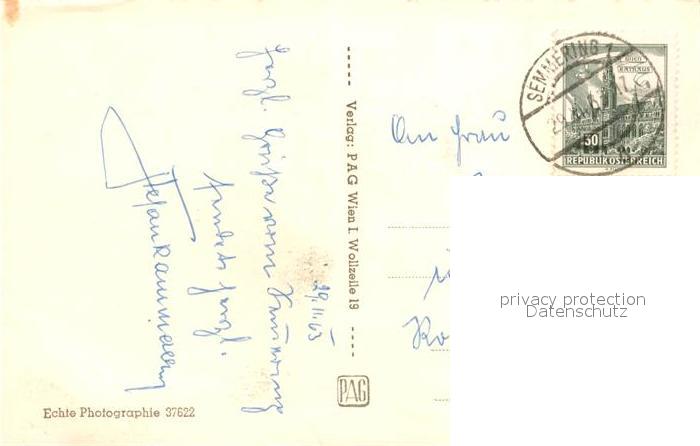 29.11.63
Herzl. Grüße vom Semmering
sendet herzl.
Verlag: PAG Wien I. Wollzeile 19
PAG
Echte Photographie 37622
An Frau
SEMMERING 1
29.XI.63
WIEN
RATHAUS
50
REPUBLIK ÖSTERREICH
privacy protection
Datenschutz